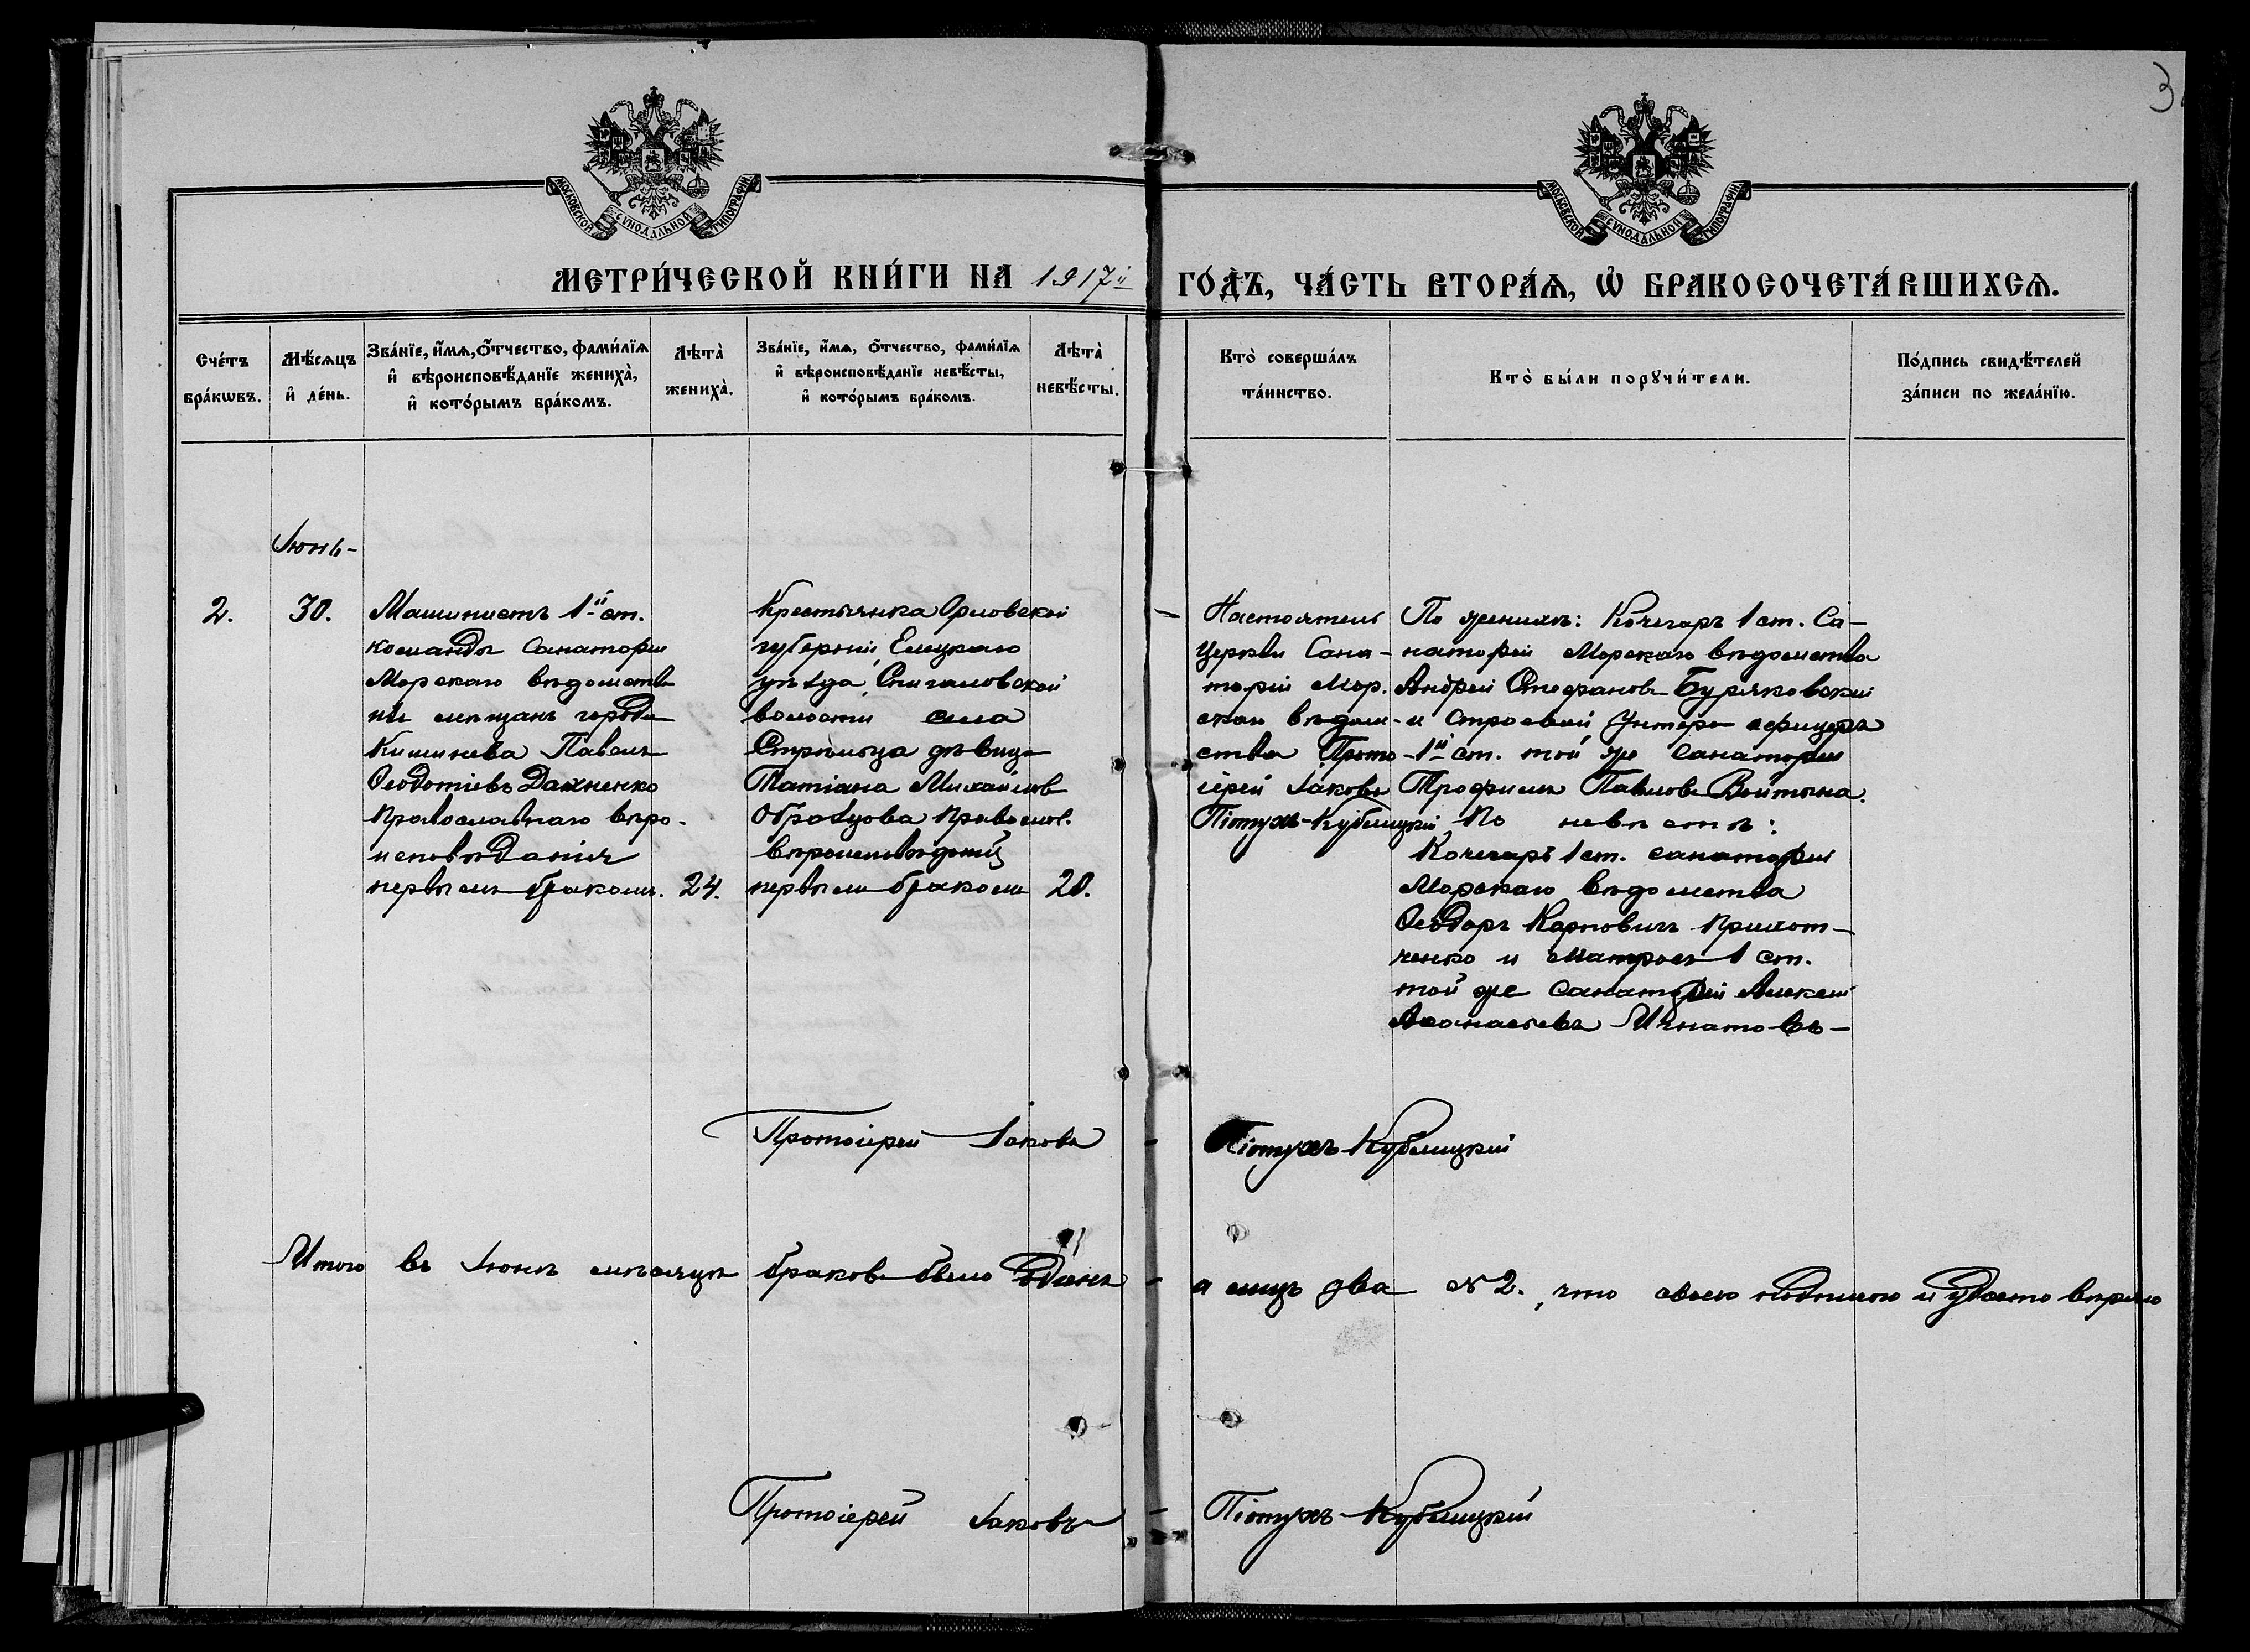 3
МОСКОВСКОЙ СУНОДАЛЬНОЙ ТИПОГРАФІИ
МОСКОВСКОЙ СУНОДАЛЬНОЙ ТИПОГРАФІИ
МЕТРИ́ЧЕСКОЙ КНИ́ГИ НА 1917й ГО́ДЪ, ЧА́СТЬ ВТОРА́Я, Ѡ҆ БРАКОСОЧЕТА́ВШИХСЯ.
Сче́тъ бра́кѡвъ.
Мѣ́сяцъ и҆ де́нь.
Зва́нїе, и҆́мѧ, ѻ҆́тчество, фами́лїѧ
и҆ вѣроисповѣ́данїе жениха̀,
и҆ кото́рымъ бра́комъ.
Лѣта̀ жениха̀.
Зва́нїе, и҆́мѧ, ѻ҆́тчество, фами́лїѧ
и҆ вѣроисповѣ́данїе невѣ́сты,
и҆ кото́рымъ бра́комъ.
Лѣта̀ невѣ́сты.
Кто̀ соверша́лъ
та́инство.
Кто̀ бы́ли порꙋчи́тели.
По́дпись свидѣ́телей
за́писи по жела́нїю.
Іюнь-
2.
30.
Машинистъ 1й ст.
команды Санаторіи
Морского вѣдомства
изъ мещанъ города
Кишинева Павелъ
Ѳеодотіевъ Дахненко
Православнаго вѣро-
исповѣданія
первымъ бракомъ.
24.
Крестьянка Орловской
губерніи, Елецкаго
уѣзда,
волости села
Стрѣльца дѣвица
Татіана Михайлов
Образцова Правосл.
вѣроисповѣданій
первымъ бракомъ
20.
Настоятель
Церкви Сана-
торіи Мор.
скаго вѣдом-
ства Прото-
іерей Іаковъ
Пѣтухъ-Кублицкій
По женихѣ: Кочегаръ 1 ст. Са-
наторіи Морскаго вѣдомства
Андрей Стефановъ Буряковскій
и Строевой Унтеръ офицеръ
1й ст. той же Санаторіи
Трофимъ Павловъ Войтына.
По невѣстѣ:
Кочегаръ 1 ст. санаторіи
Морскаго вѣдомства
Ѳеодоръ Карповичъ
и Матросъ 1 ст.
той же Санаторіи Алексѣй
Аѳанасьевъ Игнатовъ-
Протоіерей Іаковъ Пѣтухъ-Кублицкій
Итого въ Іюнѣ мѣсяцѣ браковъ было Одинъ а лицъ два № 2., что своею подписью и удостовѣряю
Протоіерей Іаковъ Пѣтухъ-Кублицкій